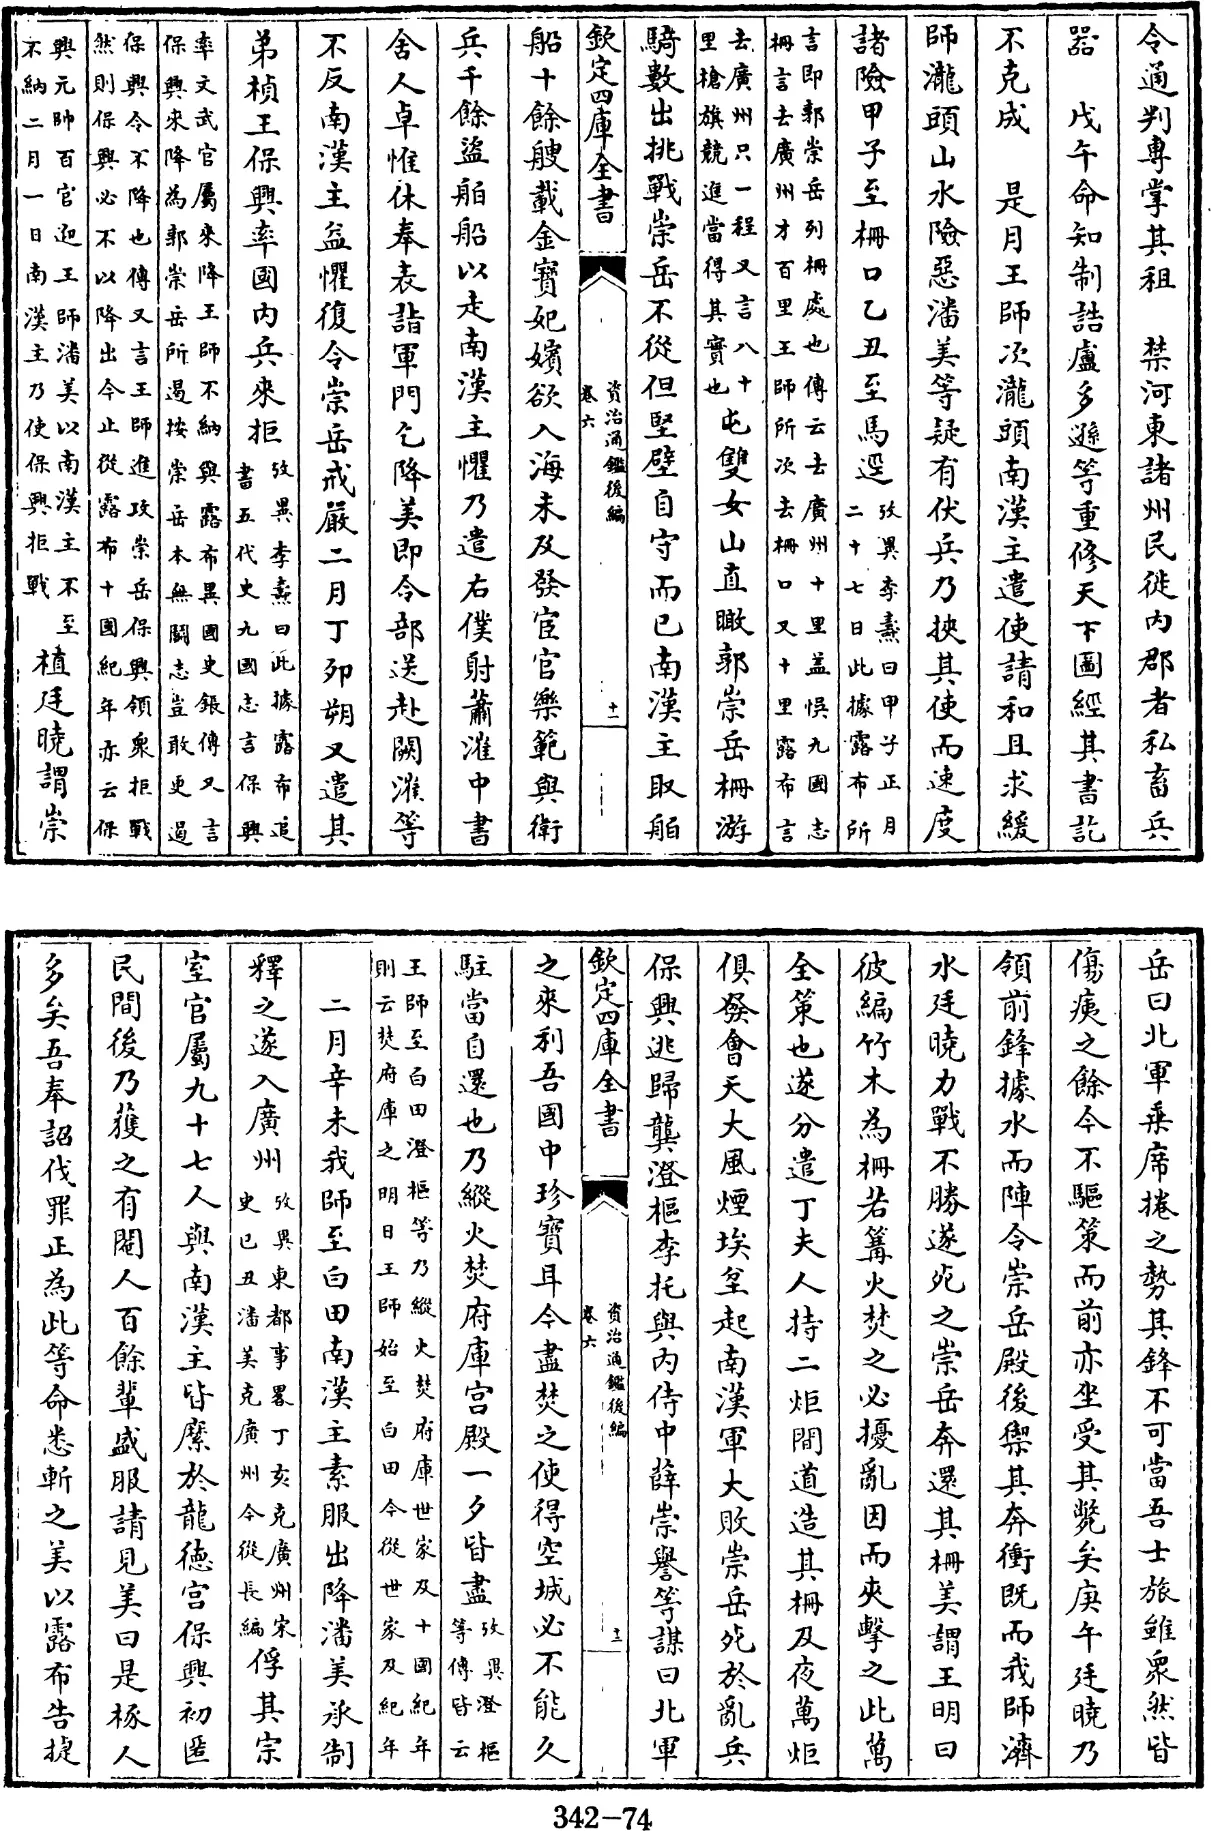 令通判專掌其租　禁河東諸州民徙内郡者私畜兵
器　戊午命知制誥盧多遜等重修天下圖經其書訖
不克成　是月王師次瀧頭南漢主遣使請和且求緩
師瀧頭山水險惡潘美等疑有伏兵乃挾其使而速度
諸險甲子至柵口乙丑至馬逕
攷異李燾曰甲子正月
二十七日此據露布所
言即郭崇岳列柵處也傳云去廣州十里盖悮九國志
柵言去廣州才百里王師所次去柵口又十里露布言
去廣州只一程又言八十
里槍旗競進當得其實也
屯雙女山直瞰郭崇岳柵游
騎數出挑戰崇岳不從但堅壁自守而已南漢主取舶
欽定四庫全書
資治通鑑後編
卷六
十二
船十餘艘載金寳妃嬪欲入海未及發宦官樂範與衛
兵千餘盜舶船以走南漢主懼乃遣右僕射蕭漼中書
舍人卓惟休奉表詣軍門乞降美即令部送赴闕漼等
不反南漢主益懼復令崇岳戒嚴二月丁夘朔又遣其
弟楨王保興率國内兵來拒
攷異李燾曰此據露布追
書五代史九國志言保興
率文武官屬來降王師不納與露布異國史鋹傳又言
保興來降為郭崇岳所遏按崇岳本無鬬志豈敢更遏
保興令不降也傳又言王師進攻崇岳保興領衆拒戰
然則保興必不以降出今止從露布十國紀年亦云保
興元帥百官迎王師潘美以南漢主不至
不納二月一日南漢主乃使保興拒戰
植廷曉謂崇
岳曰北軍乘席捲之勢其鋒不可當吾士旅雖衆然皆
傷痍之餘今不驅策而前亦坐受其斃矣庚午廷曉乃
領前鋒據水而陣令崇岳殿後禦其奔衝既而我師濟
水廷曉力戰不勝遂死之崇岳奔還其柵美謂王明曰
彼編竹木為柵若篝火焚之必擾亂因而夾擊之此萬
全策也遂分遣丁夫人持二炬間道造其柵及夜萬炬
俱發會天大風煙埃坌起南漢軍大敗崇岳死於亂兵
保興逃歸龔澄樞李托與内侍中薛崇譽等謀曰北軍
欽定四庫全書
資治通鑑後編
卷六
十三
之來利吾國中珍寳耳今盡焚之使得空城必不能久
駐當自還也乃縱火焚府庫宫殿一夕皆盡
攷異澄樞
等傳皆云
王師至白田澄樞等乃縱火焚府庫世家及十國紀年
則云焚府庫之明日王師始至白田今從世家及紀年
二月辛未我師至白田南漢主素服出降潘美承制
釋之遂入廣州
攷異東都事畧丁亥克廣州宋
史己丑潘美克廣州今從長編
俘其宗
室官屬九十七人與南漢主皆縻於龍徳宫保興初匿
民間後乃獲之有閹人百餘輩盛服請見美曰是椓人
多矣吾奉詔伐罪正為此等命悉斬之美以露布告捷
342-74